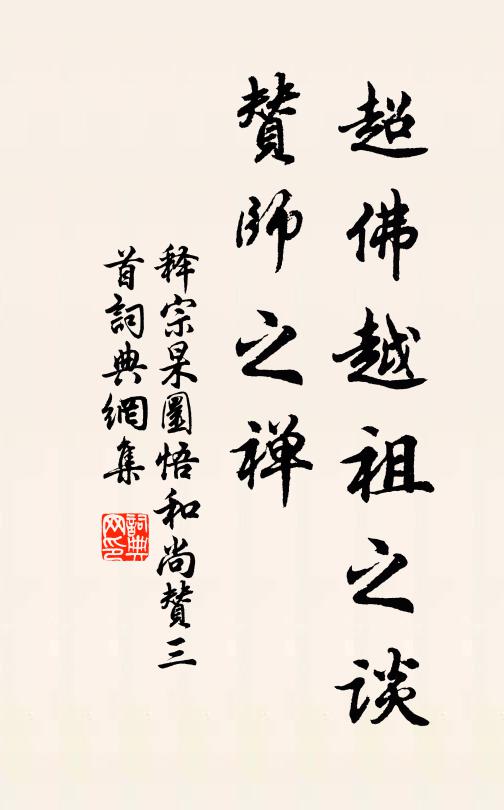 超佛越祖之谈
赞師之禅
释宗杲圜悟和尚赞三
首詞典網集
詞典
网印